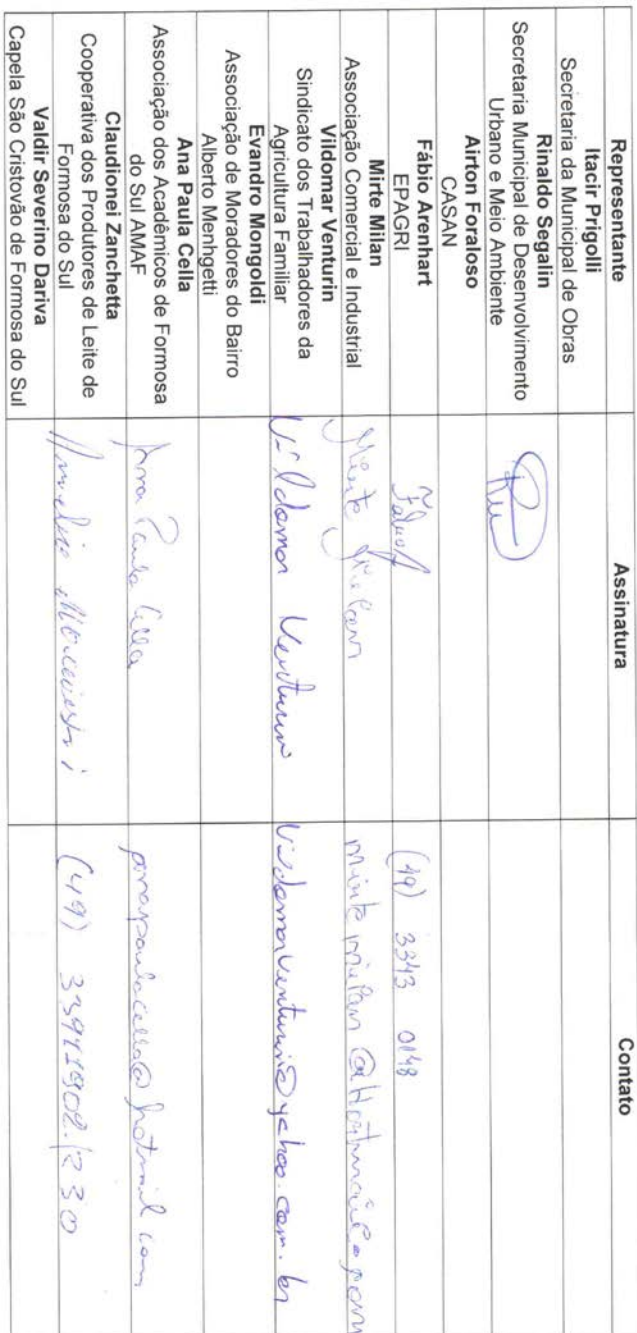 Representante Assinatura Contato
Itacir Prigolli
Secretaria da Municipal de Obras
Rinaldo Segalin
Secretaria Municipal de Desenvolvimento
Urbano e Meio Ambiente
Airton Foraloso
CASAN
Fábio Arenhart
EPAGRI
(49) 3343 0148
Mirte Milan
Associação Comercial e Industrial
Mirte Milan
Vildomar Venturin
Sindicato dos Trabalhadores da
Agricultura Familiar
Vildomar Venturin vildomarventurin@yahoo.com.br
Evandro Mongoldi
Associação de Moradores do Bairro
Alberto Menhgetti
Ana Paula Cella
Associação dos Acadêmicos de Formosa
do Sul AMAF
Ana Paula Cella anapaulacella@hotmail.com
Claudionei Zanchetta
Cooperativa dos Produtores de Leite de
Formosa do Sul
(49)
Valdir Severino Dariva
Capela São Cristovão de Formosa do Sul